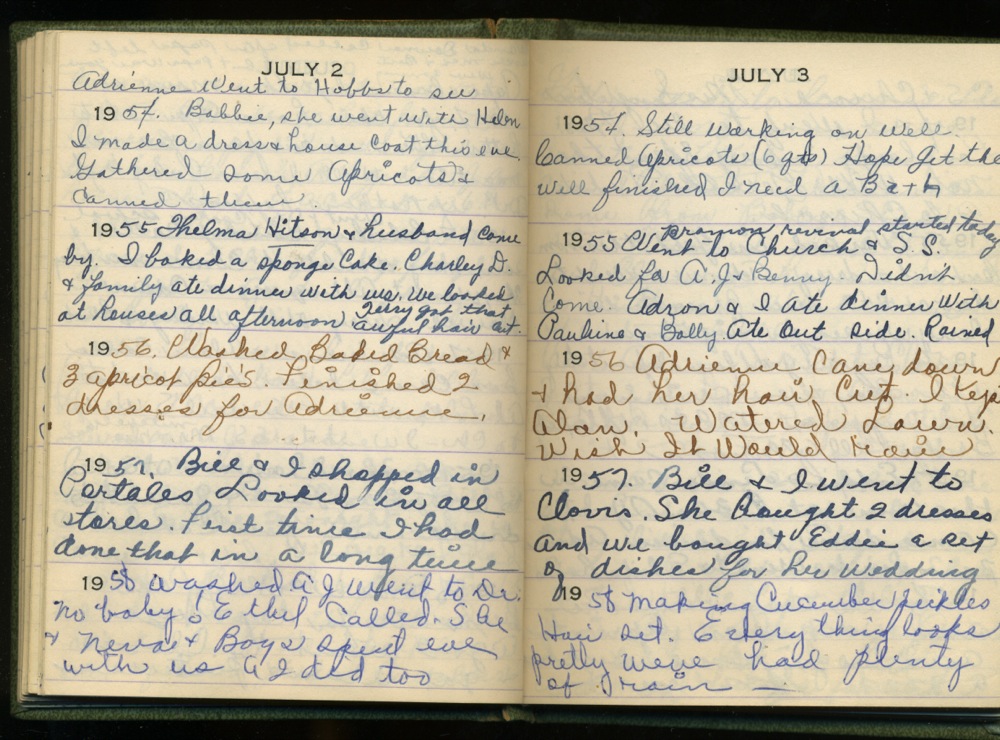 JULY 2
Adrienne Went to Hobbs to see
1954. Bobbie, she went with Helen
I made a dress & house coat this eve.
Gathered some Apricots &
Canned them.
1955 Thelma Hitson & husband come
by. I baked a sponge cake. Charley D.
& family ate dinner with us. We looked
at houses all afternoon Jerry got that
awful hair cut.
1956. Washed Baked Bread &
3 apricot pies. Finished 2
dresses for Adrienne.
1957. Bill & I shopped in
Portales Looked in all
stores. First time I had
done that in a long time
1958 washed A J went to Dr.
no baby. Ethel Called. She
& Neva & Boys spent eve
with us A J did too
JULY 3
1954. Still working on well.
Canned Apricots (6 qts) Hope Get the
well finished I need a Bath
revival started today
1955 Went to Church & S.S.
Looked for A.J. & Benny. Didnt
Come. Adron & I ate dinner With
Pauline & Bolly. Ate Out side. Rained
1956 Adrienne Came down
& had her hair Cut. I Kep
Alan. Watered Lawn.
Wish It Would rain
1957. Bill & I went to
Clovis. She Bought 2 dresses
and we bought Eddie a set
of dishes for her wedding
1958 making Cucumber pickles
Hair set. Every thing looks
pretty weve had plenty
of rain —